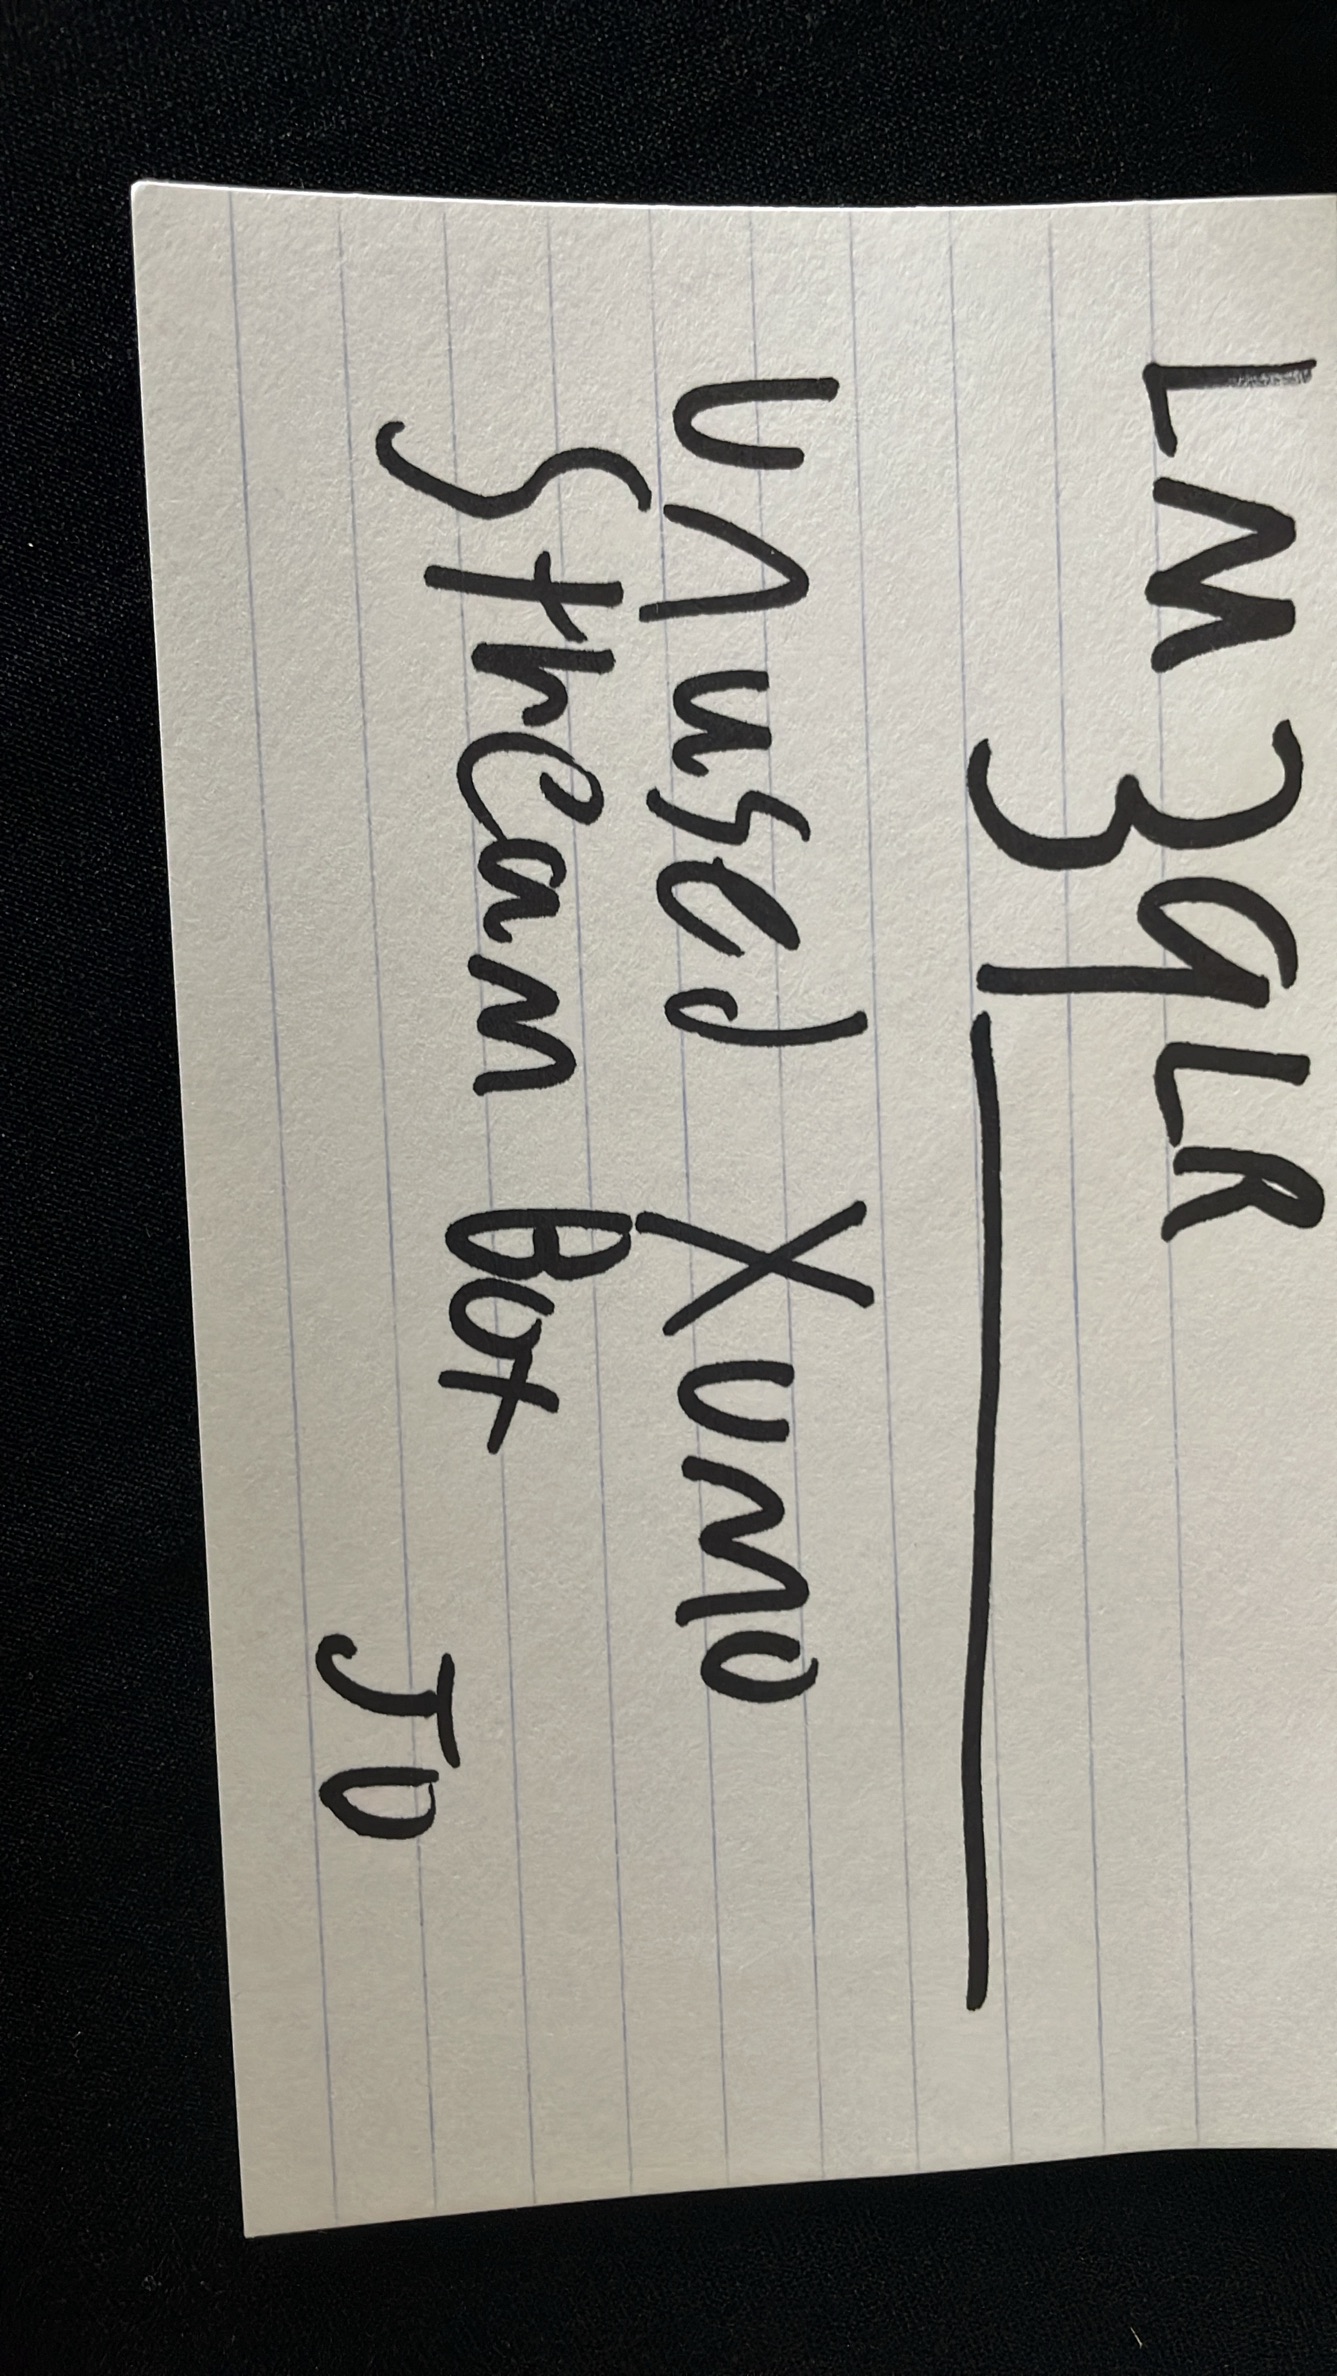 LM39LR
unused Xumo
Stream Box
JO